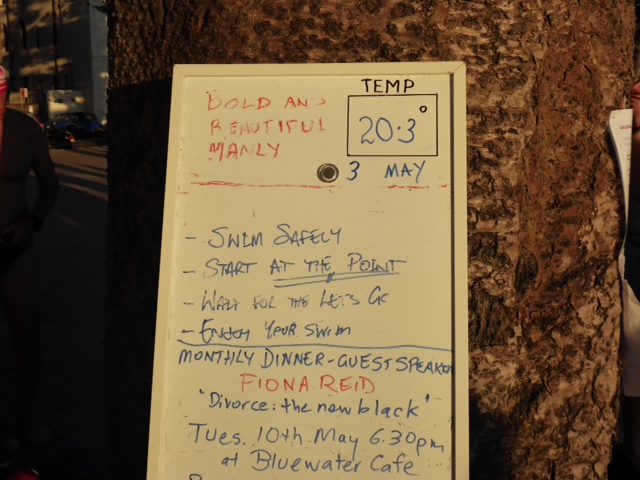 TEMP
BOLD AND
BEAUTIFUL
MANLY
20.3°
3 MAY
- SWIM SAFELY
- START AT THE POINT
- WAIT FOR THE LET'S GO
- ENJOY YOUR SWIM
MONTHLY DINNER - GUEST SPEAKER
FIONA REID
"Divorce: the new black"
Tues. 10th May 6.30pm
at Bluewater Cafe